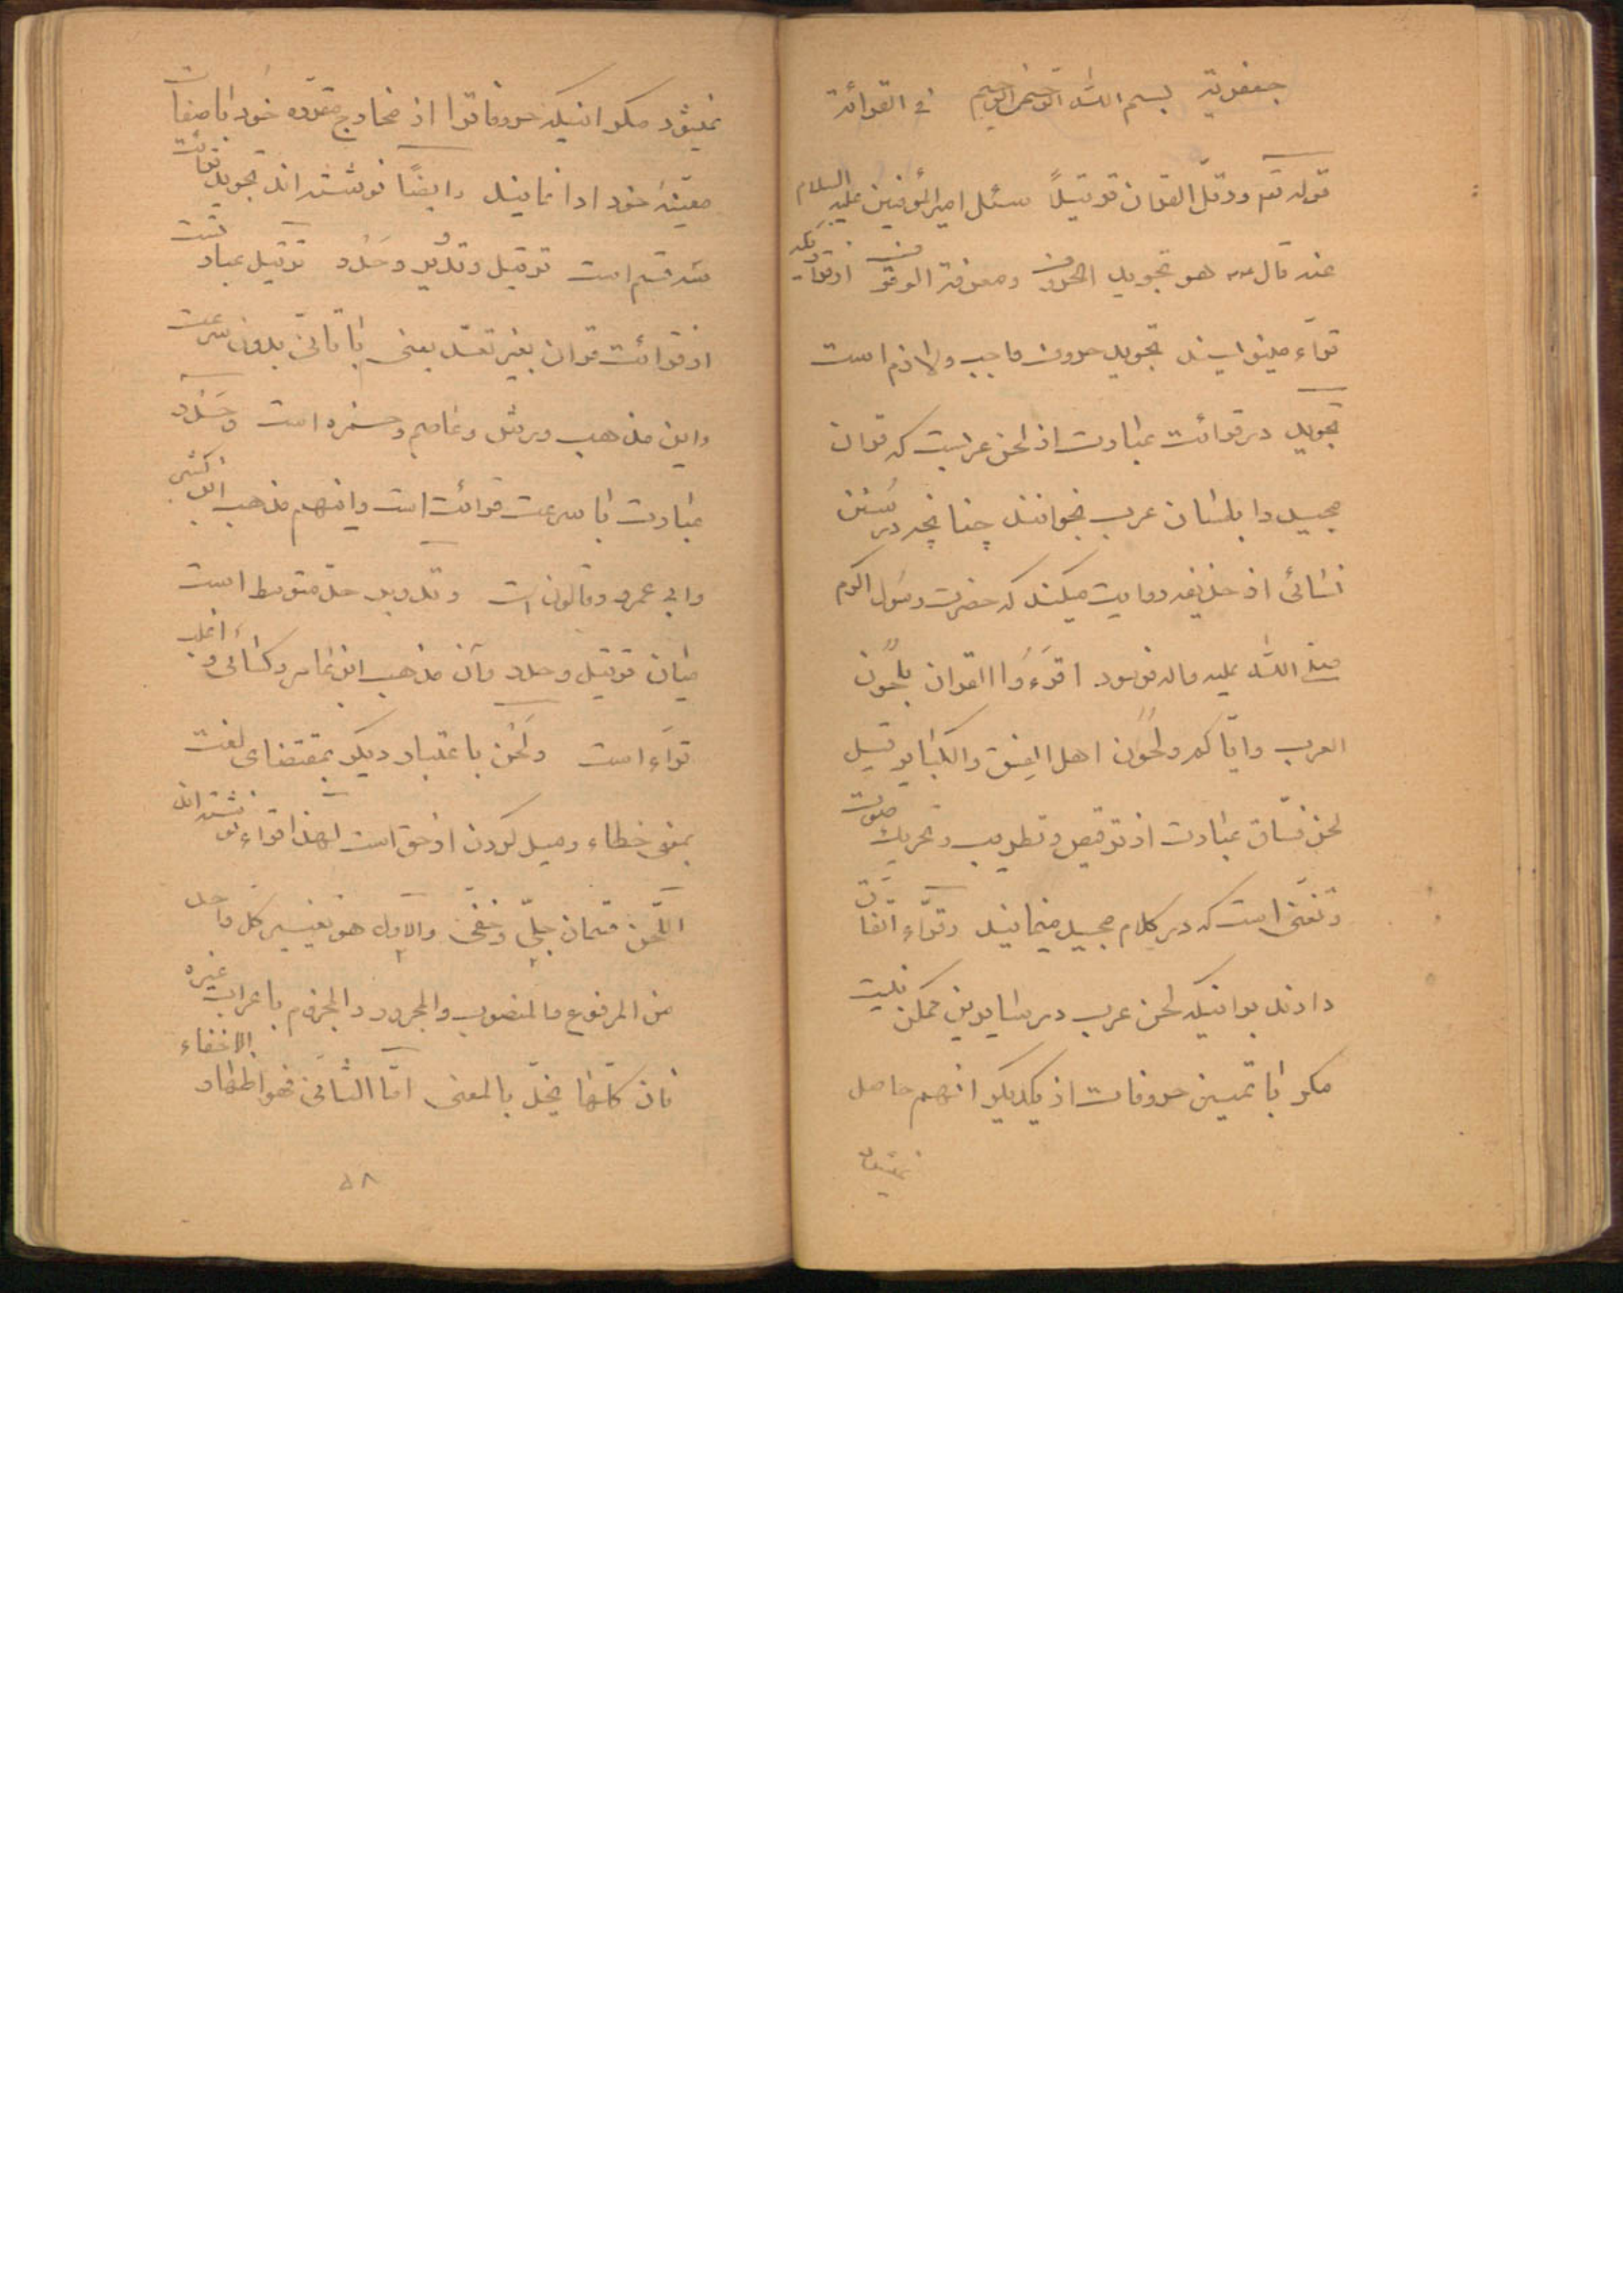 جعفریة بسم الله الرحمن الرحیم فی القرائة
قوله تعم ورتّل القران ترتیلاً سئل امیرالمؤمنین علیه السلام
عنه قال هو تجوید الحروف ومعرفة الوقوف
قراء مینویسند تجوید حروف واجب ولازم است
تجوید در قرائت عبارت از لحن عربیت که قران
مجید را بلسان عرب بخوانند چنانچه در سُنَن
نسائی از حذیفه روایت میکند که حضرت رسول اکرم
صلی الله علیه واله فرمود اقرَءُوا القران بلحُون
العرب وایّاکم ولحُون اهل الفِسق والکبایر
لحن فسّاق عبارت از ترقیص وتطریب وتحریک صوت
وتغنّی است که در کلام مجید مینمایند وقرّاء اتّفاق
دارند براینکه لحن عرب در سایرین ممکن نیست
مکر با تمییز حروفات از یکدیکر انهم حاصل
نمیشود
نمیشود مکر اینکه حروفاترا از مخارج مقرّره خود با صفات
معیّنهٔ خود ادا نمایند وایضًا نوشته اند تجوید قرائت
سه قسم است ترتیل وتدویر وحَدْر ترتیل عبارتست
از قرائت قران بغیر تعدّ یعنی با تأنّی بدون سرعت
واین مذهب ورش وعاصم وحمزه است وحَدْر
عبارت با سرعت قرائت است وانهم مذهب ابن کثیر
وابی عمرو وقالون است وتدویر حدّ متوسط است
میان ترتیل وحدر وان مذهب ابن عامر وکسائی واغلب
قراء است ولَحْن باعتبار دیکر بمقتضای لغت
بمعنی خطاء ومیل کردن از حق است لهذا قراء نوشته اند
اللّحن قسمان جلیّ وخفیّ والاول هو تغییر کل واحد
من المرفوع والمنصوب والمجرور والمجزوم باعراب غیره
فان کلّها یخلّ بالمعنی امّا الثّانی فهو اظهار الاخفاء
٥٨